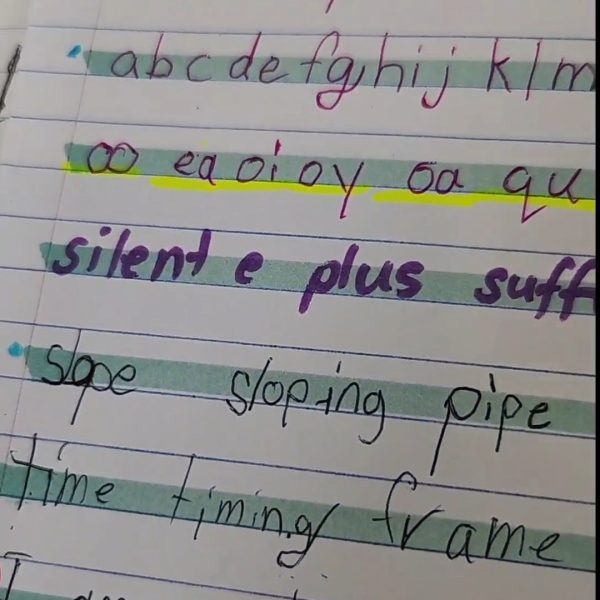 abcdefghijklm
oo ea oi oy oa qu
silent e plus suff
slope sloping pipe
time timing frame